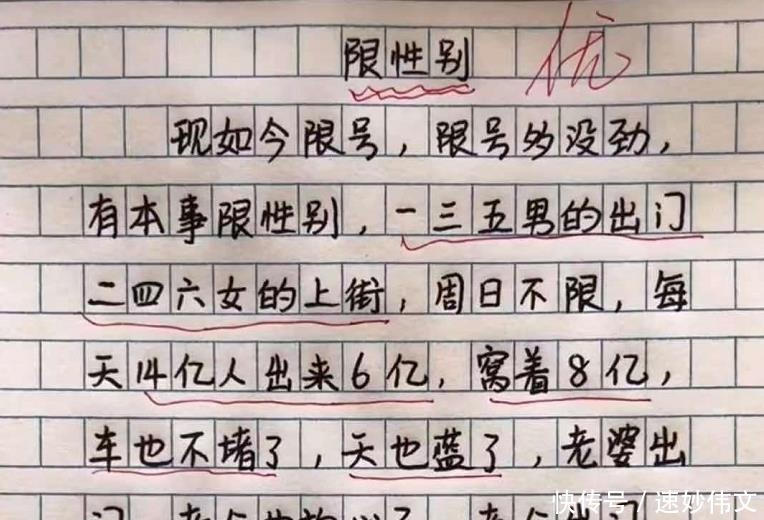 限性别
优
现如今限号，限号多没劲，
有本事限性别，一三五男的出门
二四六女的上街，周日不限，每
天14亿人出来6亿，窝着8亿，
车也不堵了，天也蓝了，老婆出
快传号／速妙伟文